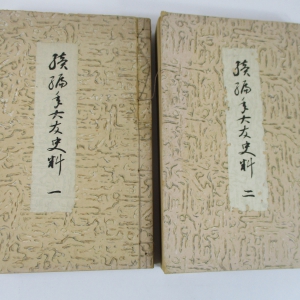 續編年大友史料 一
續編年大友史料 二